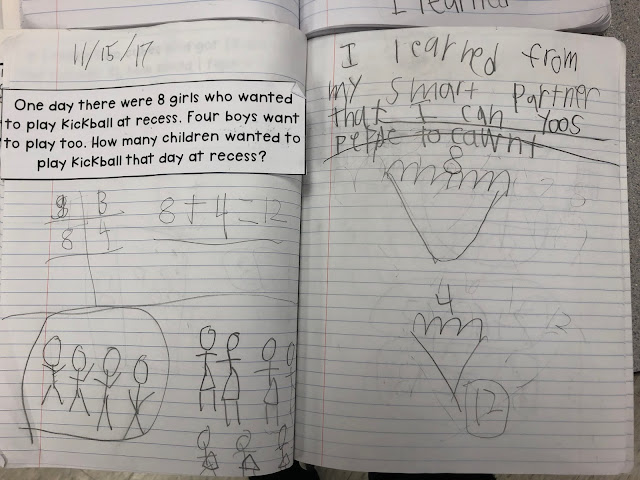 I learned
11/15/17
One day there were 8 girls who wanted
to play kickball at recess. Four boys want
to play too. How many children wanted to
play kickball that day at recess?
g B
8 4
8 + 4 = 12
I learned from
my smart partner
that I can yoos
pelpe to cawnt
8
4
12